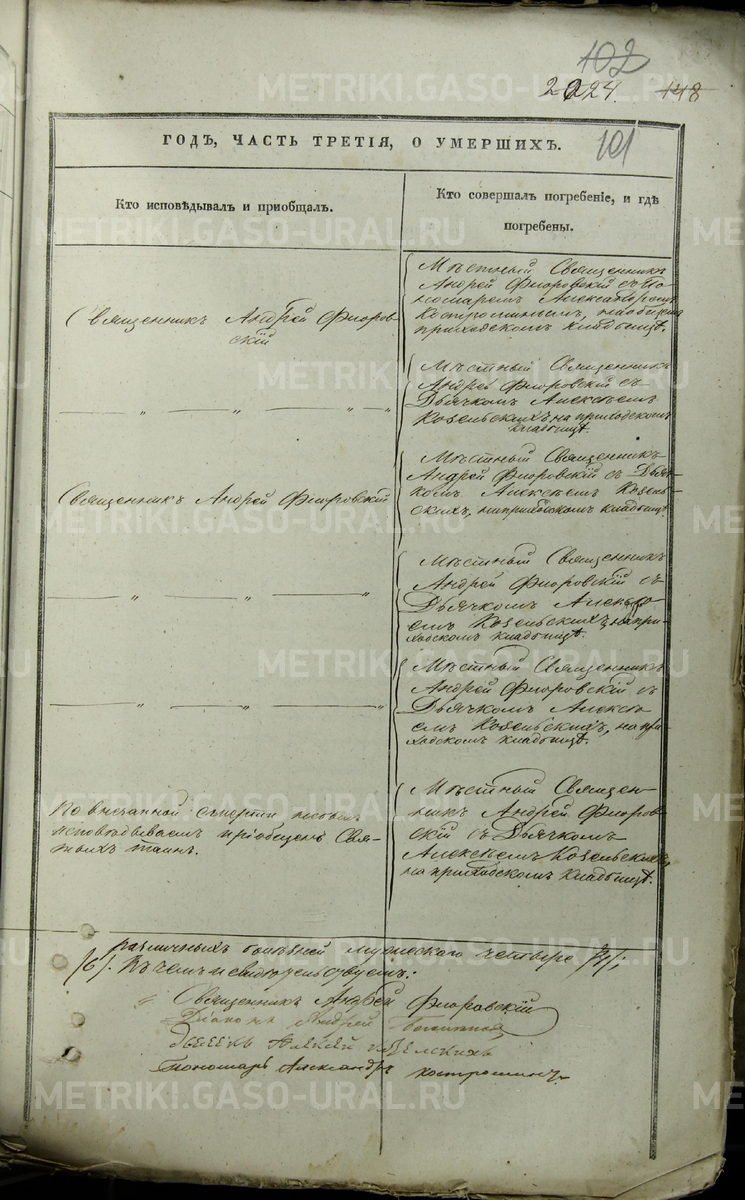 102
2024. 148
101
ГОДЪ, ЧАСТЬ ТРЕТІЯ, О УМЕРШИХЪ.
Кто исповѣдывалъ и пріобщалъ.
Кто совершалъ погребеніе, и гдѣ
погребены.
Священникъ Андрей Флоров-
скій
Мѣстный Священникъ
Андрей Флоровскій съ По-
номаремъ Александромъ
Костроминымъ, на общемъ
приходскомъ кладбищѣ.
Мѣстный Священникъ
Андрей Флоровскій съ
Дьячкомъ Алексѣемъ
Козельскихъ, на приходскомъ
кладбищѣ.
Священникъ Андрей Флоровскій
Мѣстный Священникъ
Андрей Флоровскій съ Дьяч-
комъ Алексѣемъ Козель-
скихъ, на приходскомъ кладбищѣ.
Мѣстный Священникъ
Андрей Флоровскій съ
Дьячкомъ Алексѣ-
емъ Козельскихъ, на при-
ходскомъ кладбищѣ.
Мѣстный Священникъ
Андрей Флоровскій съ
Дьячкомъ Алексѣ-
емъ Козельскихъ, на при-
ходскомъ кладбищѣ.
По внезапной смерти
исповѣдываемъ пріобщенъ Свя-
тыхъ таинъ.
Мѣстный Священ-
никъ Андрей Флоров-
скій съ Дьячкомъ
Алексѣемъ Козельскихъ,
на приходскомъ кладбищѣ.
различныхъ болѣзней мужескаго четверо /4/;
/6/. Въ чемъ и свидѣтельствуемъ:
Священникъ Андрей Флоровскій
Діаконъ Андрей
Дьячекъ Алексѣй Козельскихъ
Пономарь Александръ Костроминъ
METRIKI.GASO-URAL.RU